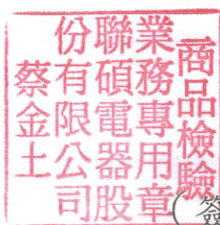 商品檢驗
業務專用章
聯碩電器股
份有限公司
蔡金土
簽